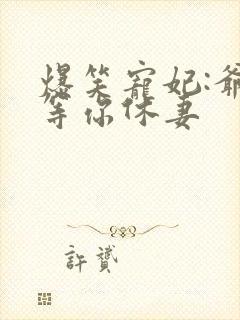 爆笑寵妃:爺
等你休妻
許贊